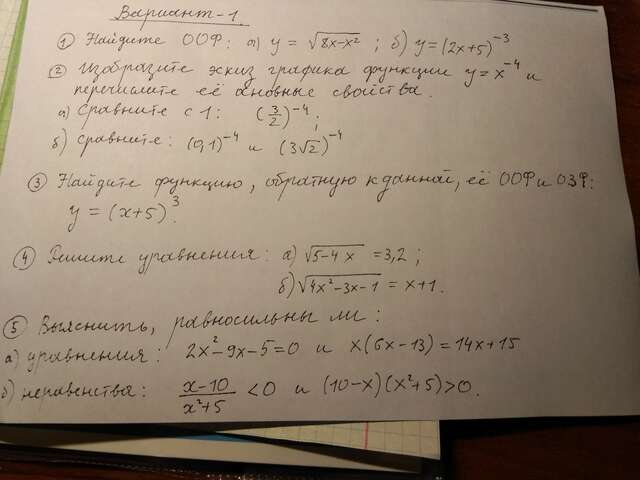 Вариант-1.
① Найдите ООФ: а) y = √(8x-x²) ; б) y=(2x+5)⁻³
② Изобразите эскиз графика функции y=x⁻⁴ и
перечислите её основные свойства.
а) Сравните с 1: (3/2)⁻⁴;
б) Сравните: (0,1)⁻⁴ и (3√2)⁻⁴
③ Найдите функцию, обратную к данной, её ООФ и ОЗФ:
y = (x+5)³.
④ Решите уравнения: а) √(5-4x) = 3,2 ;
б) √(4x²-3x-1) = x+1.
⑤ Выяснить, равносильны ли:
а) уравнения: 2x²-9x-5=0 и x(6x-13)=14x+15
б) неравенства: (x-10)/(x²+5) < 0 и (10-x)(x²+5)>0.